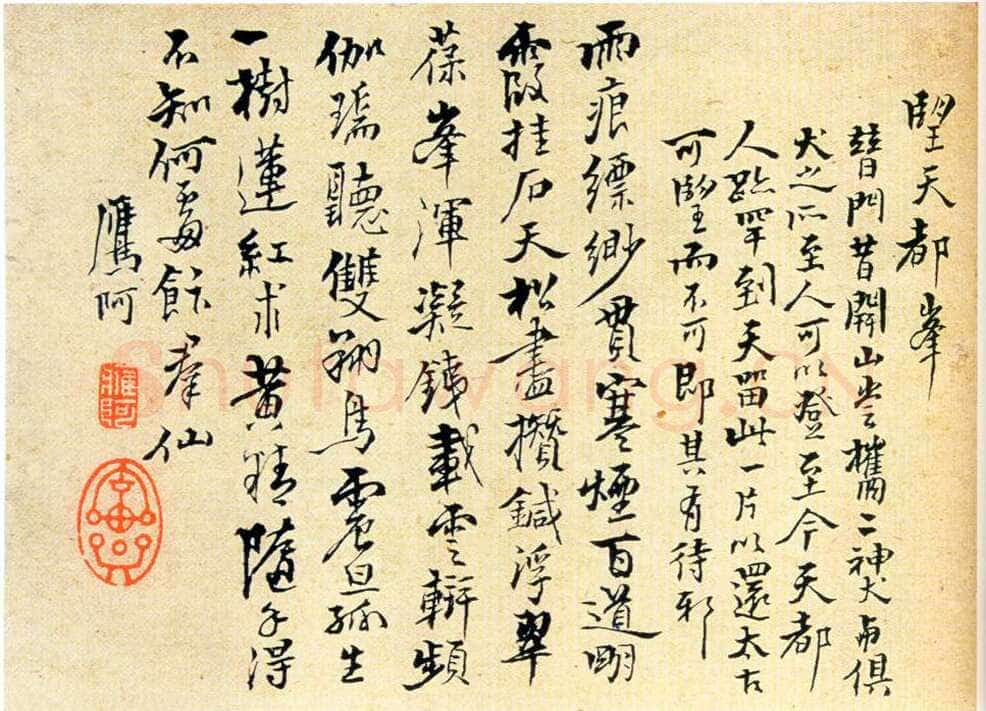 望天都峯
普門昔開山嘗攜二神犬與俱
犬之所至人可以登至今天都
人跡罕到天留此一片以還太古
可望而不可即其有待邪
雨痕縹緲貫寒煙百道明
霞挂石天松盡攢鍼浮翠
葆峯渾凝鐵載雲輧頻
伽瑞聽雙翔鳥震旦孤生
一樹蓮紅求黃精隨手得
不知何處飯羣仙
鷹阿
鷹阿